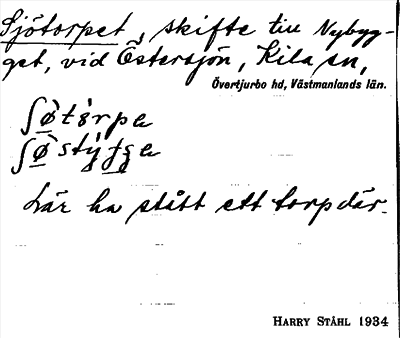 Sjötorpet, skifte till Nybyg-
get, vid Östersjön, Kila sn,
Övertjurbo hd, Västmanlands län.
Lär ha stått ett torp där.
HARRY STÅHL 1934